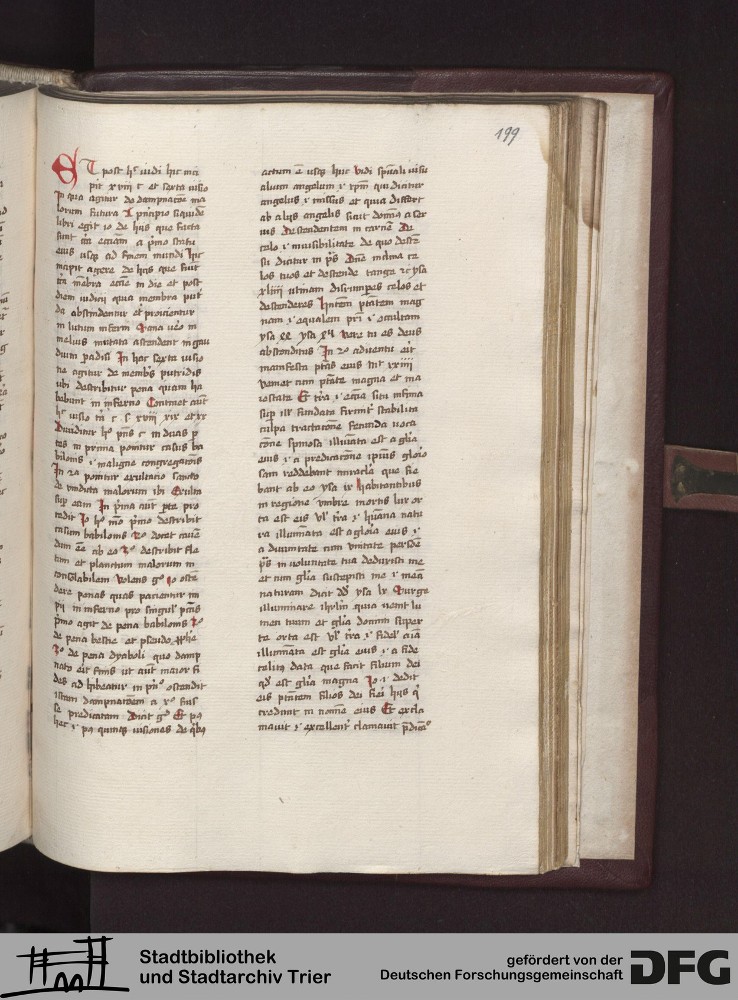 199
Et post hec vidi hic inci
pit xviii c et sexta visio
In qua agitur de dampnacoe ma
lorum futura A pncipio siquide
libri egit io de hijs que facta
sunt eciam a pmo statu
eius usque ad finem mundi Hic
incipit agere de hijs que fiut
membra eciam in die et post
diem iudicii quia membra put
da abscindentur et proicientur
in lutum inferni Sana vero in
melius mutata ascendent in gau
dium padisi In hac sexta visio
ne agitur de membris putridis
ubi describitur pena quam ha
bebunt in inferno Continet aut
hec visio c s xviii xix et xx
Dividitur hoc pns c in duas p
tes in prima ponitur casus ba
bilonis et maligne congregacois
In 2a ponitur exultacio sancto
de vindicta malorum ibi Exulta
super eam In prima aut pte pro
cedit Io hoc mo primo describit
casum babilonis 2o docet cauen
dum ee ab eo 3o describit fle
tum et planctum malorum in
consolabilem Volens go io osten
dere penas quas pacientur im
pii in inferno pro singulis pctis
primo agit de pena babilonis 2o
de pena bestie et pseudo pphe
3o de pena dyaboli quo damp
nato erit finis ut aut maior fi
des adhibeatur in pmo ostendit
istam dampnacoem a xo fuis
se predicatam Dicit go Et post
hec post quinque visiones de quibus
actum e usque huc Vidi spuali visu
alium angelum xpm qui dicitur
angelus missus et quia differt
ab alijs angelis sicut domus a ser
uis Descendentem in carnem De
celo invisibilitate de quo descen
su dicitur in ps Dne inclina ce
los tuos et descende tange ysa
xliiii utinam disrumperes celos et
descenderes Hntem ptatem mag
nam equalem pri occultam
ysa xl ysa Vere tu es deus
absconditus In 2o adventu erit
manifesta ptas eius mt xxiiii
veniet cum ptate magna et ma
iestate Et tra eccia siti infima
super illum fundata firmiter stabilita
culpa tractacione fecunda voca
cione spinosa illuiata est a glia
eius a predicacione ipius glori
sam reddebant miracla que fie
bant ab eo ysa ix Habitantibus
in regione umbre mortis lux or
ta est eis vel tra humana natu
ra illuminata est a gloria eius
a divinitate cum unitate persone
ps in voluntate tua deduxisti me
et cum glia suscepisti me mea
naturam dicit ds ysa lx Surge
illuminare ihrlm quia venit lu
men tuum et glia domini super
te orta est vel tra fidelis aia
illuminata est glia eius a fide
celitus data que facit filium dei
quod est glia magna Io i dedit
eis ptatem filios dei fieri hijs qui
credunt in nomine eius Et excla
mavit excellenter clamavit pdicacio
Stadtbibliothek
und Stadtarchiv Trier
gefördert von der
Deutschen Forschungsgemeinschaft
DFG